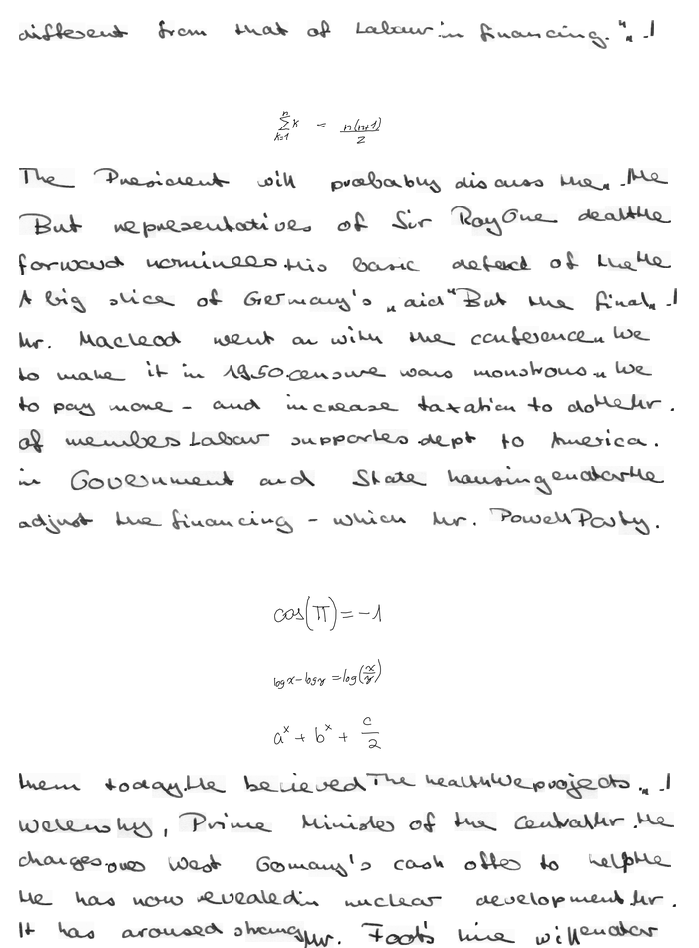 different from that of Labour in financing. " „ . I
\sum_{k=1}^{n} k = \frac{n(n+1)}{2}
The President will probably discuss the „ . He
But representatives of Sir Roy One dealthe
forward nominees this basic defect of the He
A big slice of Germany's „ aid " But the final „ . I
Mr. Macleod went on with the conference „ We
to make it in 1950. censure was monstrous „ We
to pay more - and increase taxation to do He Mr .
of member Labour supportes dept to America .
in Government and State housing enator He
adjust the financing - which Mr. Powell Party .
cos(π) = -1
log x - log y = log(\frac{x}{y})
a^x + b^x + \frac{c}{2}
them today. He believed The health We projects . „ . I
Welensky , Prime Minister of the Central Mr . He
changes over West Germany's cash offer to help He
He has now revealed in nuclear development Mr .
It has aroused strong Mr. Foot's line will enator